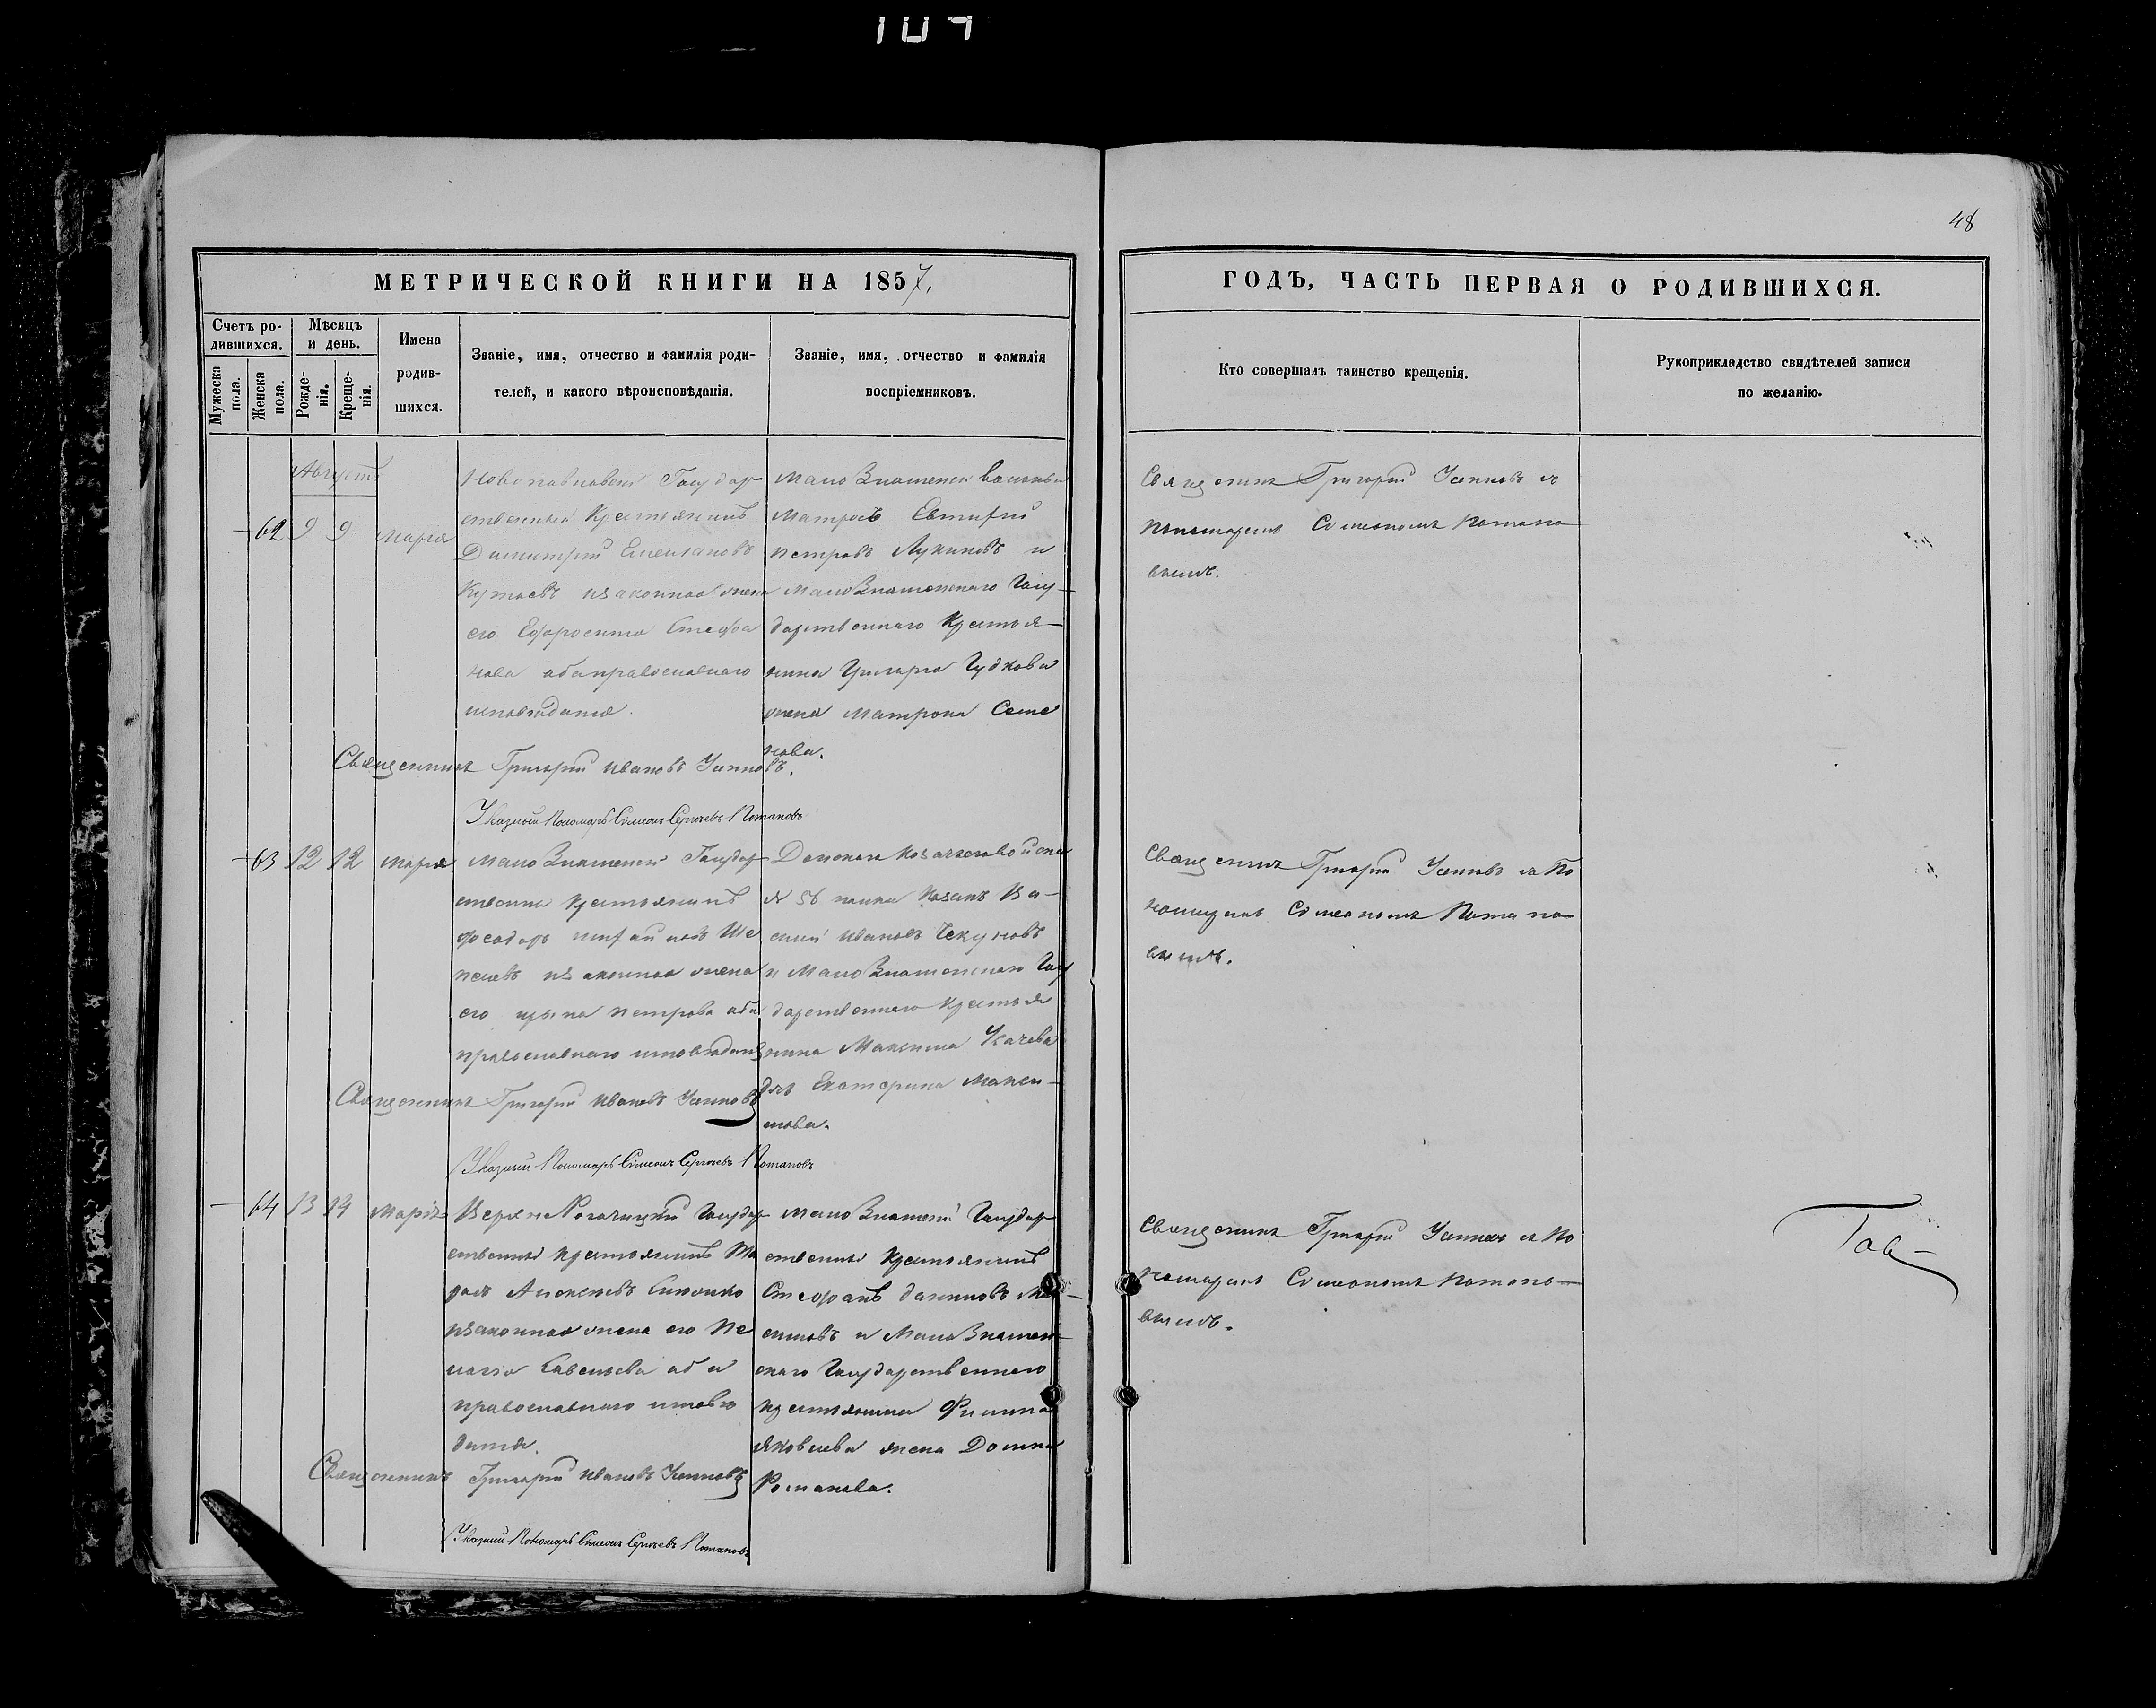 104
48
МЕТРИЧЕСКОЙ КНИГИ НА 1857,
ГОДЪ, ЧАСТЬ ПЕРВАЯ О РОДИВШИХСЯ.
Счетъ ро-
дившихся.
Мужеска пола.
Женска пола.
Мѣсяцъ
и день.
Рожде-
нія.
Креще-
нія.
Имена
родив-
шихся.
Званіе, имя, отчество и фамилія роди-
телей, и какого вѣроисповѣданія.
Званіе, имя, отчество и фамилія
воспріемниковъ.
Кто совершалъ таинство крещенія.
Рукоприкладство свидѣтелей записи
по желанію.
Августъ
62 9 9 Марія
Новопавловскій Государ
ственный Крестьянинъ
Димитрій
изаконная жена
его Ефросинія Стефа
нова оба православнаго
исповѣданія.
МалоЗнаменскій
матросъ Евтифій
Петровъ Лукиновъ и
МалоЗнаменскаго Госу-
дарственнаго Крестья-
нина Григорія Гудкова
жена Матрона Семе
нова.
Священникъ Григорій Ивановъ
Указный Пономарь Симеонъ Сергѣевъ Потаповъ
Священникъ Григорій съ
Пономаремъ Симеономъ Потапо-
вымъ.
63 12 12 Марія
МалоЗнаменскій Государ
ственный Крестьянинъ
Феодоръ
изаконная жена
его Ирина Петрова оба
православнаго исповѣданія
Донскаго Козачьяго
№ 56 полка Козакъ Ва-
силій Ивановъ Чекуновъ
и МалоЗнаменскаго Госу
дарственнаго Крестья
нина Максима
дочь Екатерина Макси-
мова.
Священникъ Григорій Ивановъ
Указный Пономарь Симеонъ Сергѣевъ Потаповъ
Священникъ Григорій съ По
номаремъ Симеономъ Потапо-
вымъ.
64 13 14 Марія
Верхне Рогачицкій Государ
ственный Крестьянинъ
Алексѣевъ
изаконная жена его Пе
лагія Савельева оба
православнаго исповѣ
данія.
МалоЗнаменскій Государ
ственный Крестьянинъ
Стефанъ
и МалоЗнамен-
скаго Государственнаго
Крестьянина Филипа
Яковлева жена Домна
Романова.
Священникъ Григорій Ивановъ
Указный Пономарь Симеонъ Сергѣевъ Потаповъ
Священникъ Григорій съ По
номаремъ Симеономъ Потапо-
вымъ.